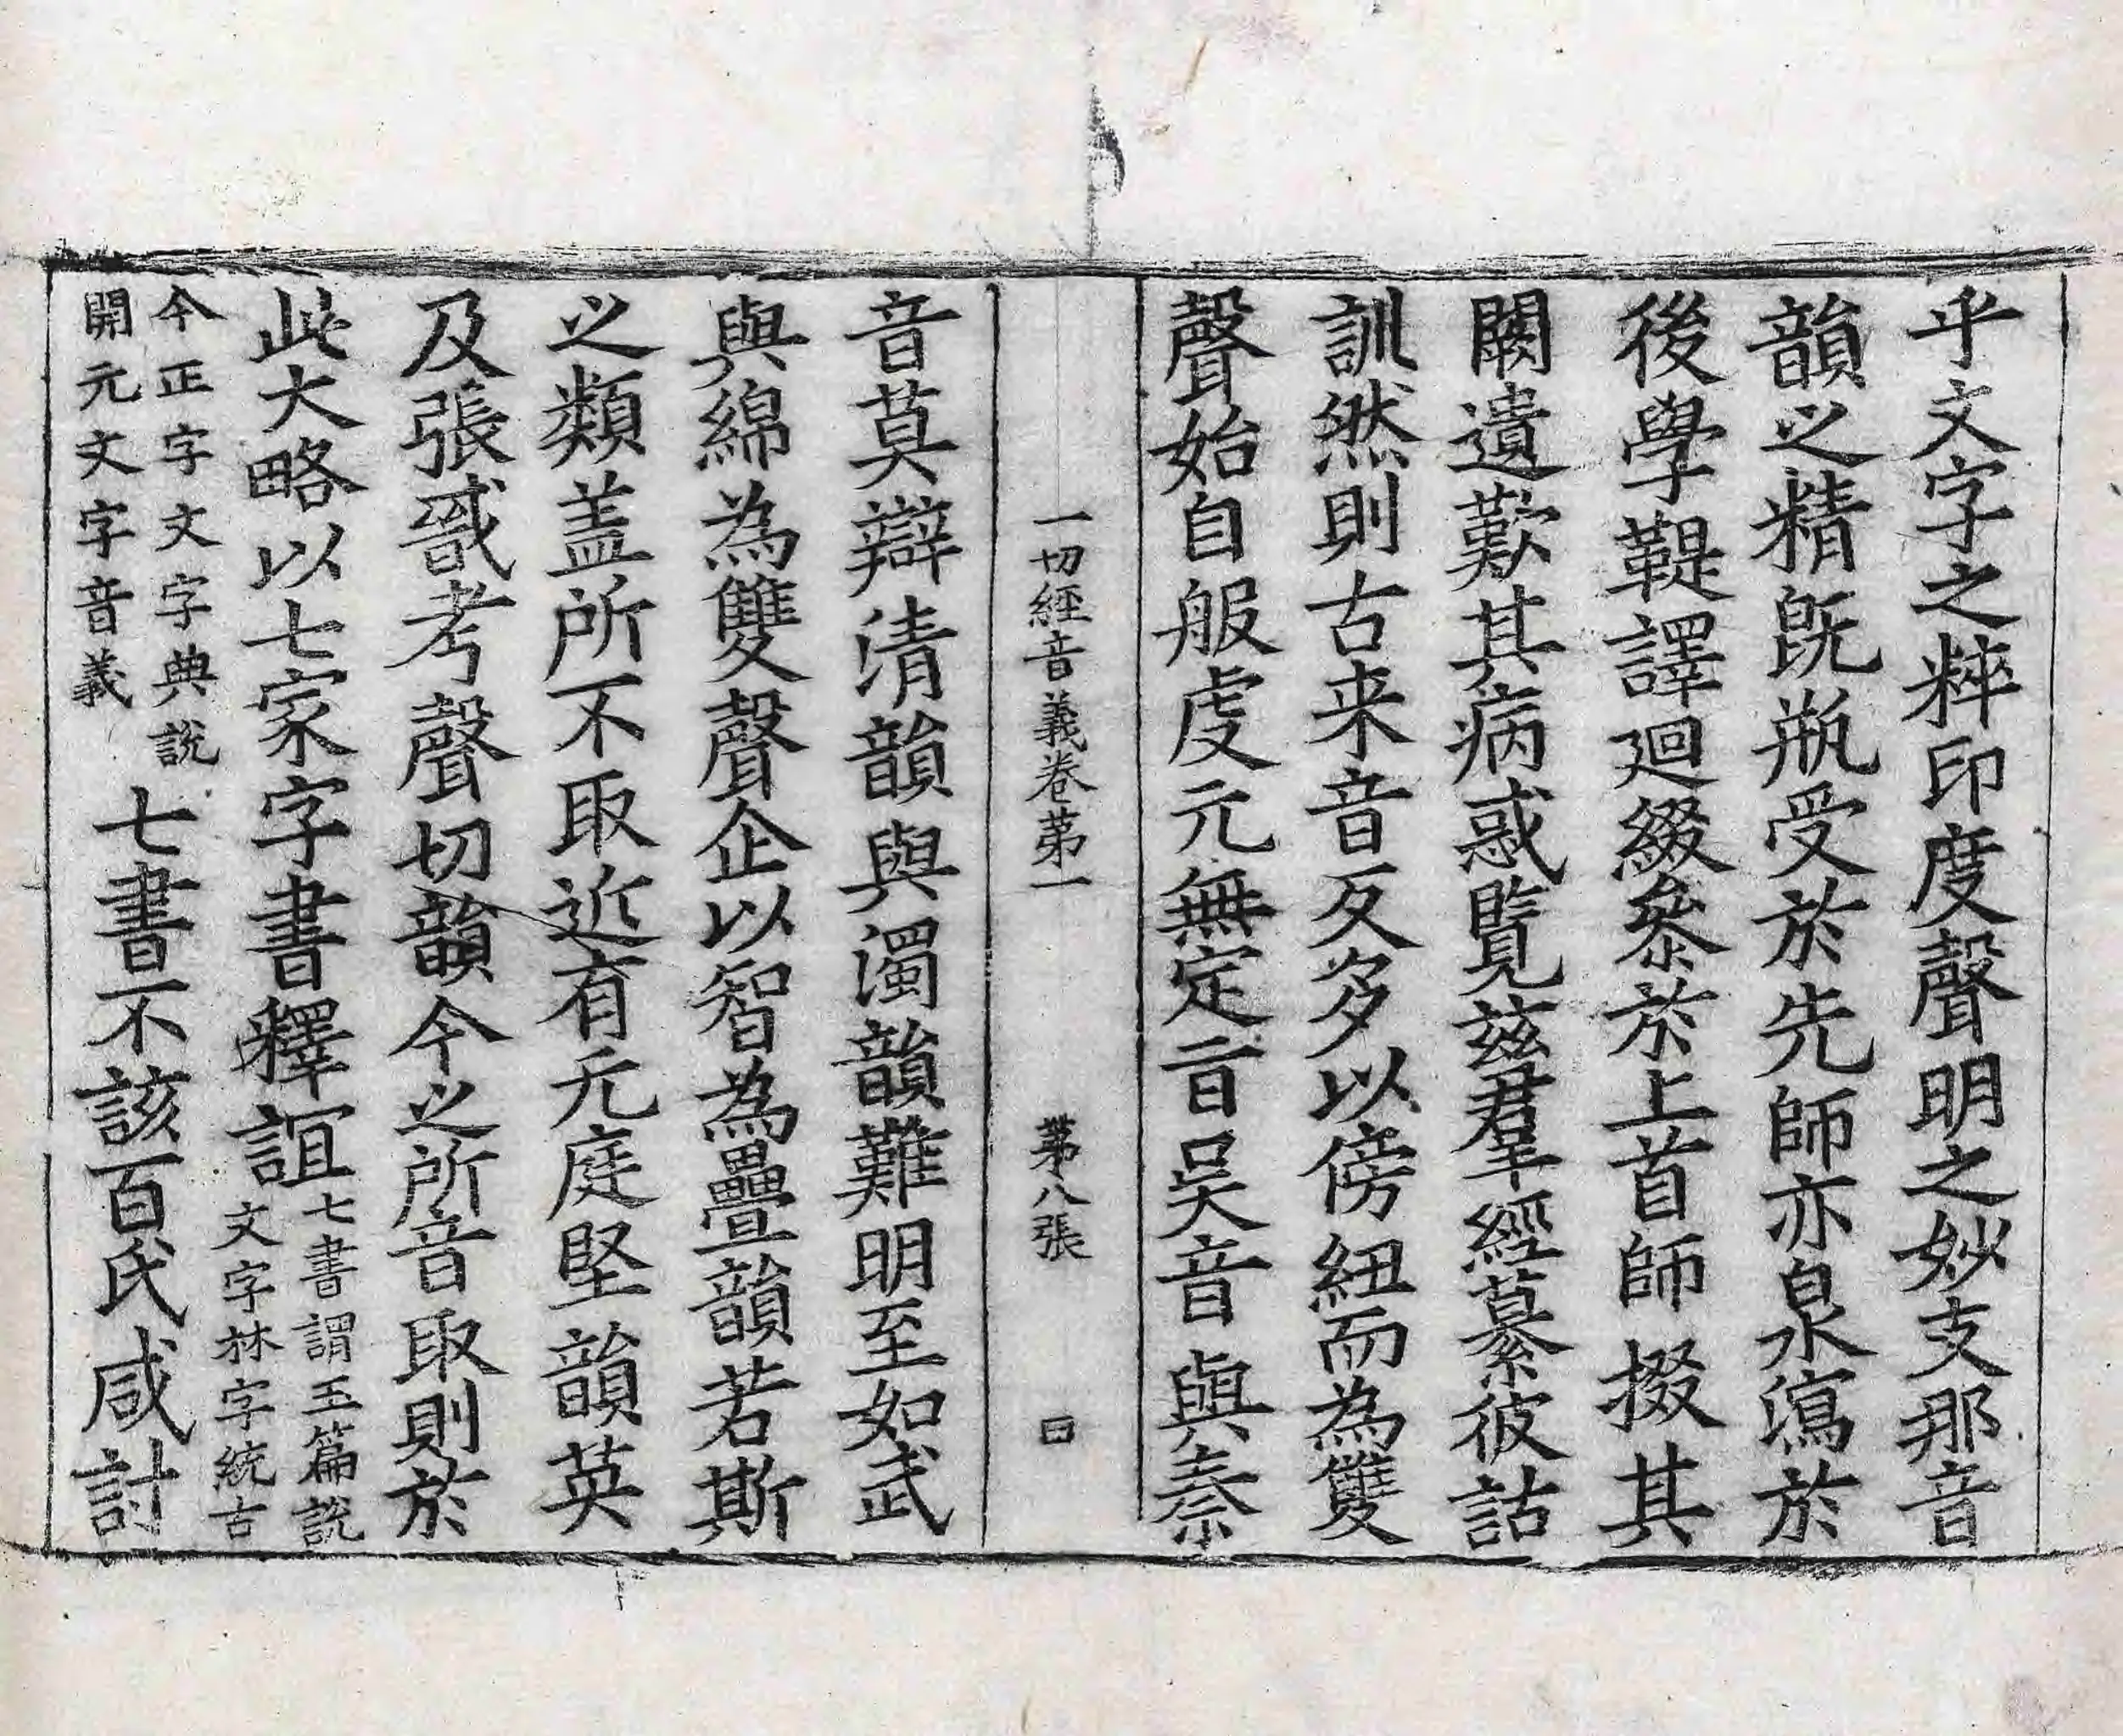 乎文字之粹印度聲明之妙支那音
韻之精旣瓶受於先師亦泉瀉於
後學鞮譯迴綴參於上首師掇其
闕遺歎其病惑覧兹羣經纂彼詁
訓然則古来音反多以傍紐而為雙
聲始自服虔元無定旨吴音與秦
一切經音義卷第一 第八張 曰
音莫辯清韻與濁韻難明至如武
與綿為雙聲企以智為疊韻若斯
之類盖所不取近有元庭堅韻英
及張戩考聲切韻今之所音取則於
此大略以七家字書釋誼
七書謂玉篇說
文字林字統古
今正字文字典說
開元文字音義
七書不該百氏咸討